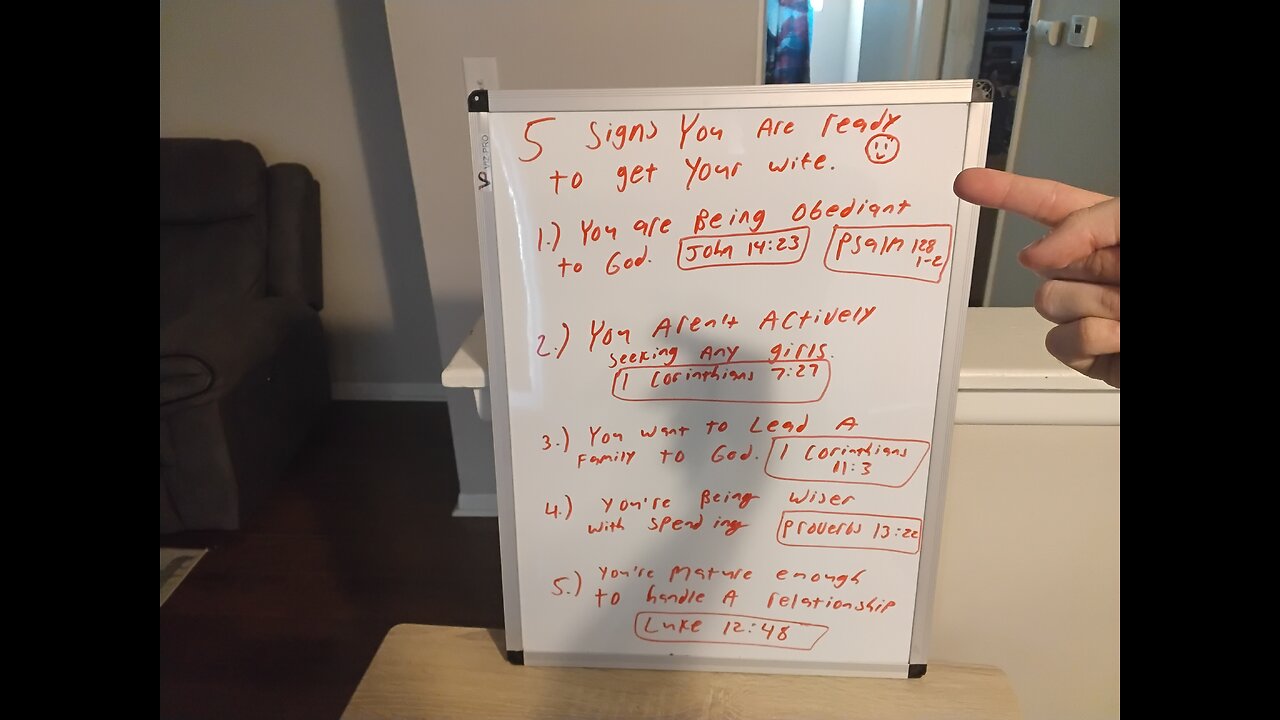 5 Signs You Are ready
to get Your wife.
1.) You are Being Obediant
to God. John 14:23 Psalm 128
1-2
2.) You Aren't Actively
seeking Any girls.
1 Corinthians 7:27
3.) You want to Lead A
Family to God. 1 Corinthians
11:3
4.) You're Being Wiser
with spending Proverbs 13:22
5.) You're Mature enough
to handle A relationship
Luke 12:48
VIZ PRO